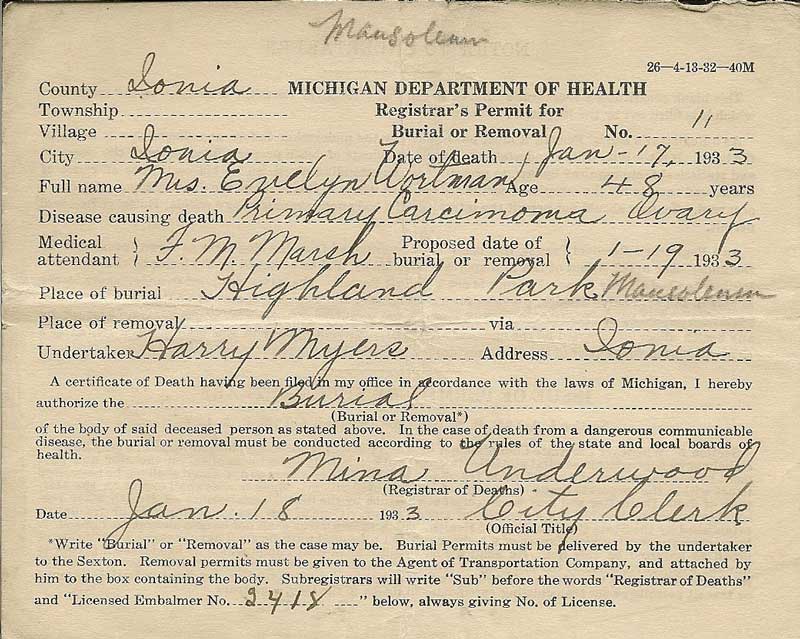 Mausoleum
26—4-13-32—40M
County Ionia MICHIGAN DEPARTMENT OF HEALTH
Township Registrar's Permit for
Village Burial or Removal No. 11
City Ionia Date of death Jan-17, 1933
Full name Mrs. Evelyn Wortman Age 48 years
Disease causing death Primary Carcimoma Ovary
Medical attendant F. M. Marsh Proposed date of burial or removal 1-19 1933
Place of burial Highland Park Mausoleum
Place of removal via
Undertaker Harry Myers Address Ionia
A certificate of Death having been filed in my office in accordance with the laws of Michigan, I hereby
authorize the Burial
(Burial or Removal*)
of the body of said deceased person as stated above. In the case of death from a dangerous communicable
disease, the burial or removal must be conducted according to the rules of the state and local boards of
health.
Mina Underwood
(Registrar of Deaths)
Date Jan. 18 1933 City Clerk
(Official Title)
*Write "Burial" or "Removal" as the case may be. Burial Permits must be delivered by the undertaker
to the Sexton. Removal permits must be given to the Agent of Transportation Company, and attached by
him to the box containing the body. Subregistrars will write "Sub" before the words "Registrar of Deaths"
and "Licensed Embalmer No. 2418 " below, always giving No. of License.